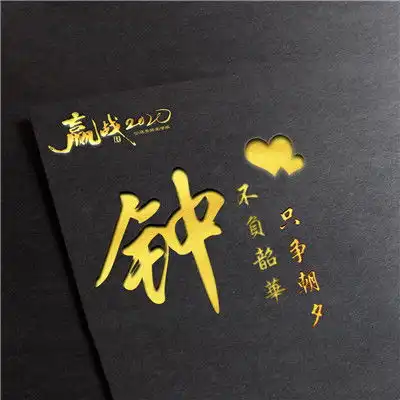 赢战2020
钟
只争朝夕
不負韶華